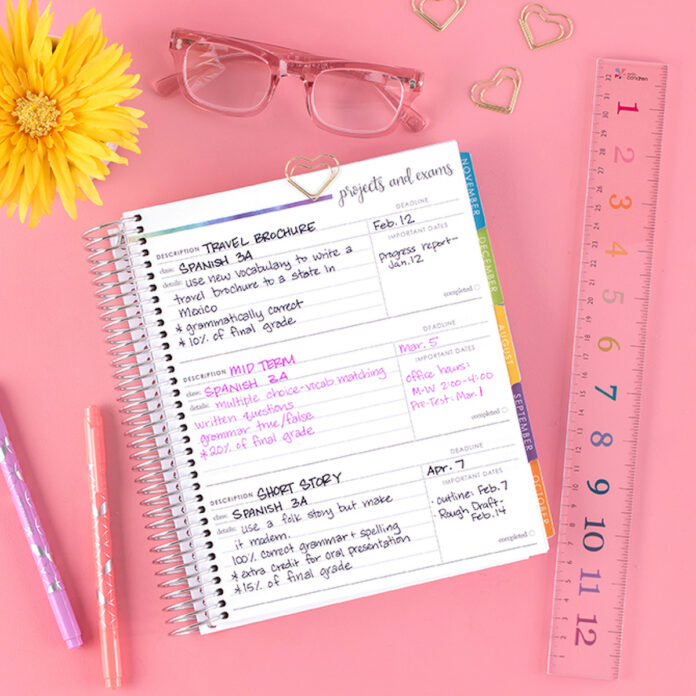 projects and exams
DESCRIPTION TRAVEL BROCHURE
class: SPANISH 3A
details: use new vocabulary to write a
travel brochure to a state in
Mexico
* grammatically correct
* 10% of final grade
DEADLINE
Feb. 12
IMPORTANT DATES
Progress report-
Jan. 12
completed
DESCRIPTION MID TERM
class: SPANISH 3A
details: multiple choice-vocab matching
written questions
grammar true/false
*20% of final grade
DEADLINE
Mar. 5
IMPORTANT DATES
office hours:
M-W 2:00-4:00
Pre-Test: Mar. 1
completed
DESCRIPTION SHORT STORY
class: SPANISH 3A
details: use a folk story but make
it modern.
100% correct grammar + spelling
* extra credit for oral presentation
*15% of final grade
DEADLINE
Apr. 7
IMPORTANT DATES
· outline: Feb. 7
Rough Draft-
Feb. 14
completed
NOVEMBER
DECEMBER
AUGUST
SEPTEMBER
OCTOBER
erin condren
1
2
3
4
5
6
7
8
9
10
11
12